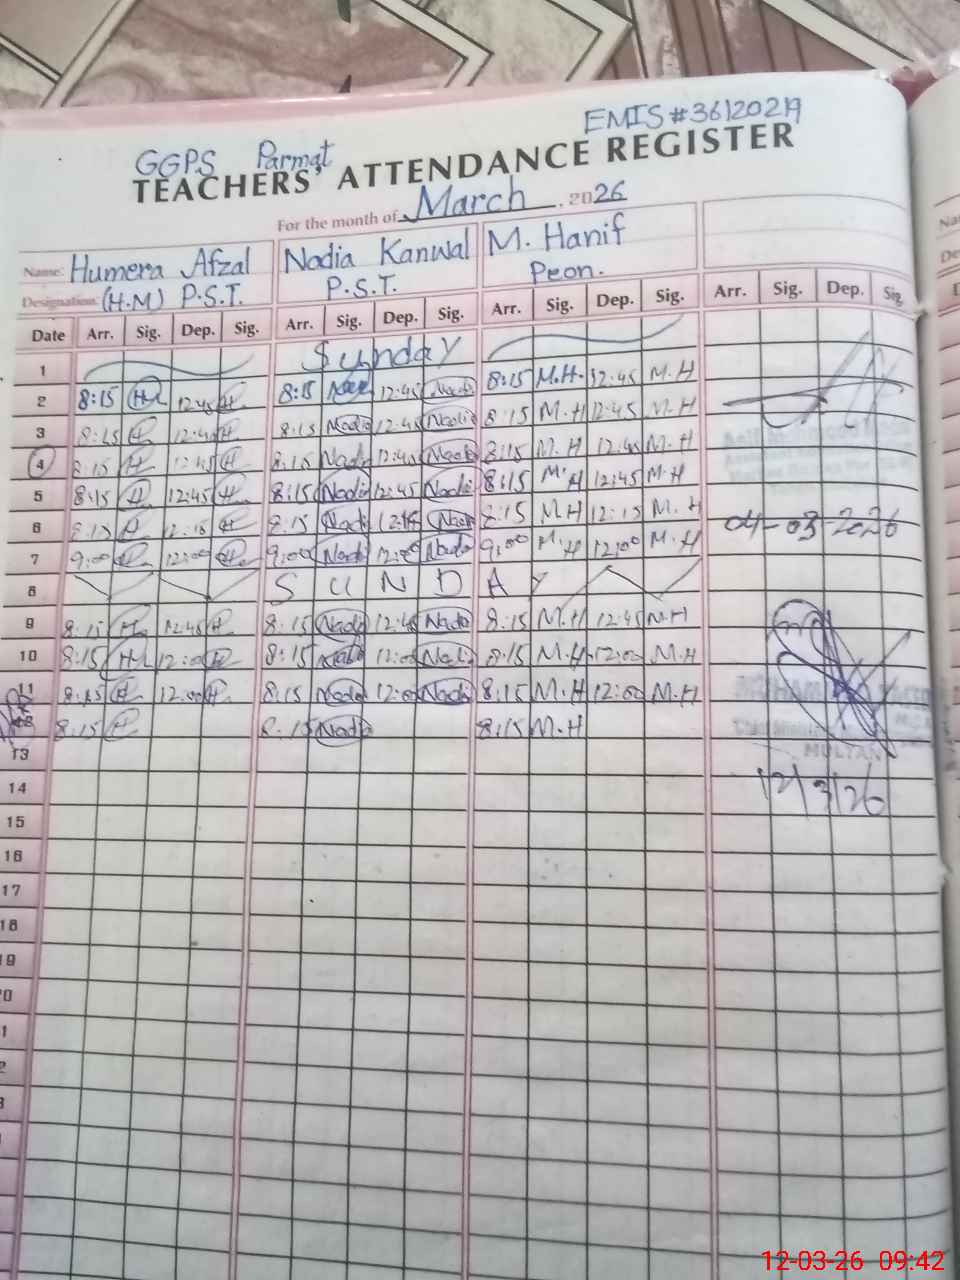 EMIS # 36120219
GGPS Parmat
TEACHERS' ATTENDANCE REGISTER
For the month of March, 2026
Name: Humera Afzal Nadia Kanwal M. Hanif
Designation: (H.M) P.S.T. P.S.T. Peon.
Date Arr. Sig. Dep. Sig. Arr. Sig. Dep. Sig. Arr. Sig. Dep. Sig. Arr. Sig. Dep. Sig.
1 Sunday
2 8:15 H 12:45 H 8:15 12:45 Nadia 8:15 M.H. 12:45 M.H
3 8:15 H 12:45 H 8:15 Nadia 12:45 Nadia 8:15 M.H 12:45 M.H
4 8:15 H 12:45 H 8:15 Nadia 12:45 Nadia 8:15 M.H 12:45 M.H
5 8:15 H 12:45 H 8:15 Nadia 12:45 Nadia 8:15 M.H 12:45 M.H
6 8:15 H 12:15 H 8:15 Nadia 12:15 Nadia 8:15 M.H 12:15 M.H
04-03-2026
7 9:00 H 12:00 H 9:00 Nadia 12:00 Nadia 9:00 M.H 12:00 M.H
8 SUNDAY
9 8:15 H 12:45 H 8:15 Nadia 12:45 Nadia 8:15 M.H 12:45 M.H
10 8:15 H 12:00 H 8:15 Nadia 12:00 Nadia 8:15 M.H 12:00 M.H
11 8:15 H 12:00 H 8:15 Nadia 12:00 Nadia 8:15 M.H 12:00 M.H
8:15 H 8:15 Nadia 8:15 M.H
MULTAN
13
12/3/26
14
15
16
17
18
19
12-03-26 09:42